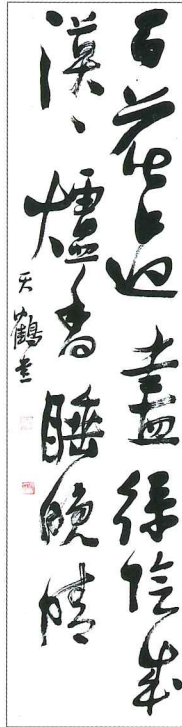 百花過盡緑陰成
漠々爐香睡晩晴
天鶴書